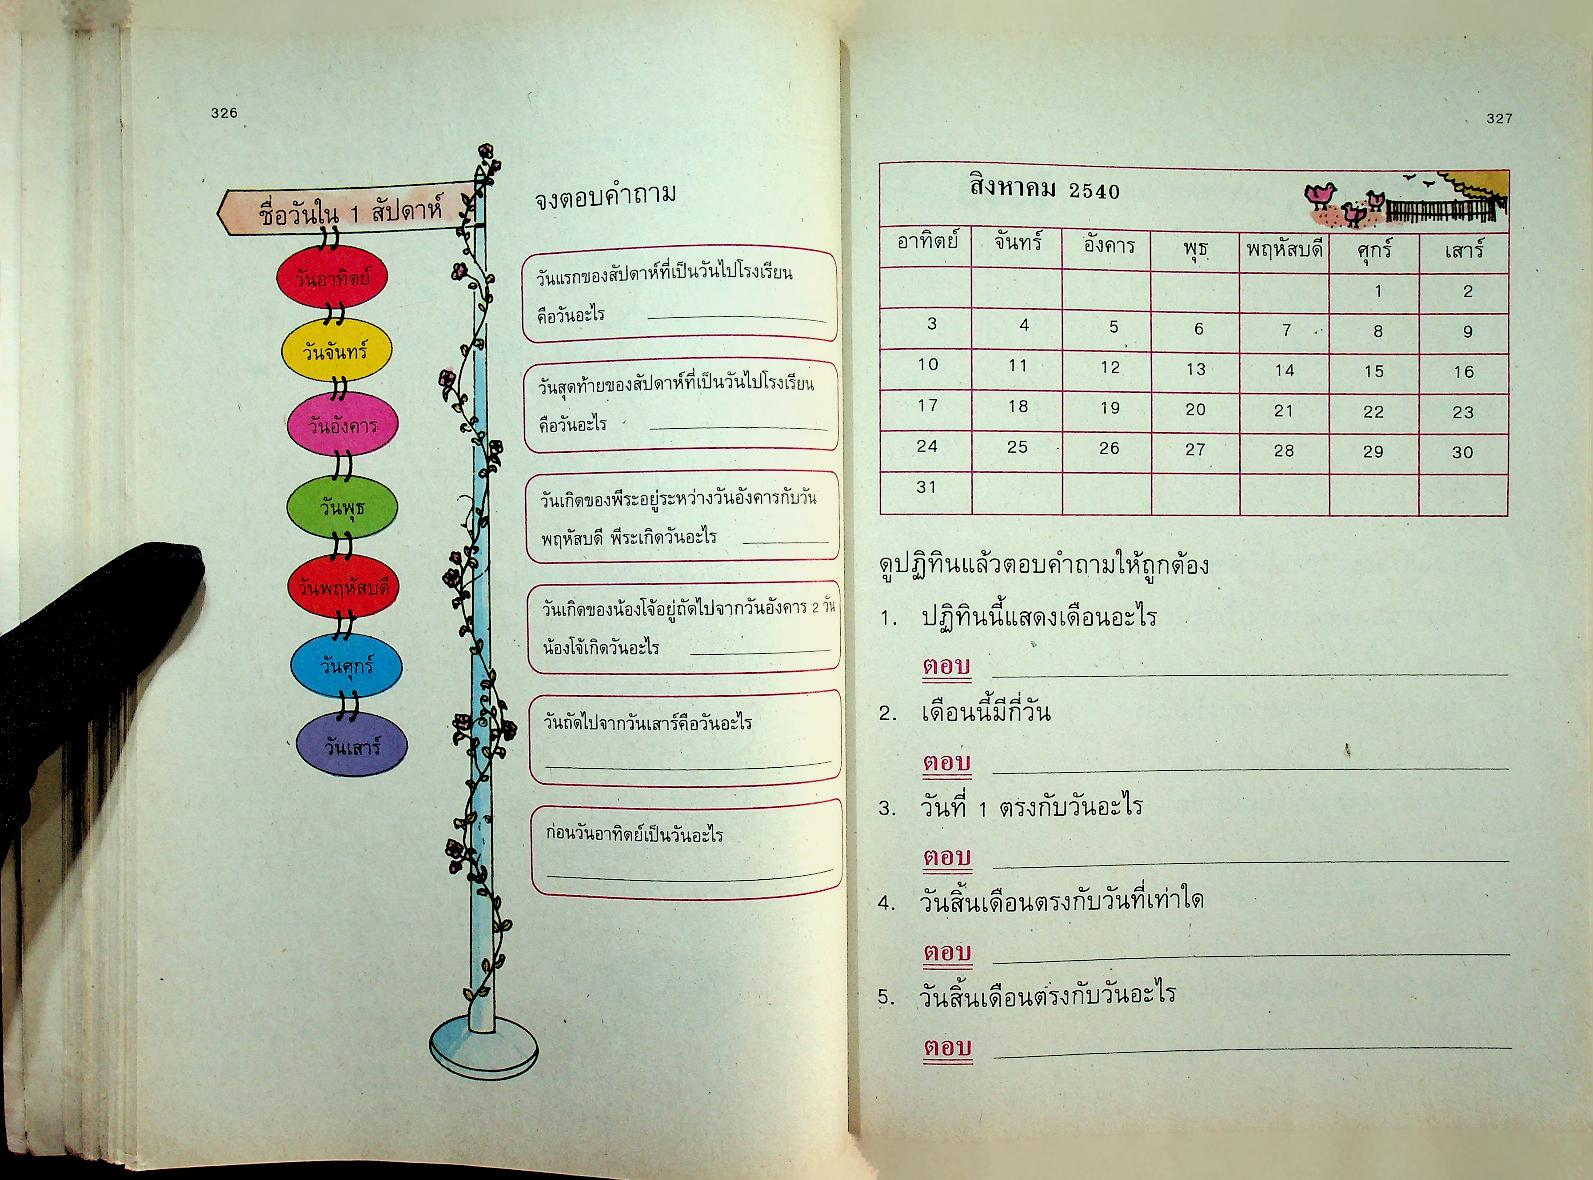 326
ชื่อวันใน 1 สัปดาห์
วันอาทิตย์
วันจันทร์
วันอังคาร
วันพุธ
วันพฤหัสบดี
วันศุกร์
วันเสาร์
จงตอบคำถาม
วันแรกของสัปดาห์ที่เป็นวันไปโรงเรียน
คือวันอะไร
วันสุดท้ายของสัปดาห์ที่เป็นวันไปโรงเรียน
คือวันอะไร
วันเกิดของพีระอยู่ระหว่างวันอังคารกับวัน
พฤหัสบดี พีระเกิดวันอะไร
วันเกิดของน้องโจ้อยู่ถัดไปจากวันอังคาร 2 วัน
น้องโจ้เกิดวันอะไร
วันถัดไปจากวันเสาร์คือวันอะไร
ก่อนวันอาทิตย์เป็นวันอะไร
327
สิงหาคม 2540
อาทิตย์ จันทร์ อังคาร พุธ พฤหัสบดี ศุกร์ เสาร์
1 2
3 4 5 6 7 8 9
10 11 12 13 14 15 16
17 18 19 20 21 22 23
24 25 26 27 28 29 30
31
ดูปฏิทินแล้วตอบคำถามให้ถูกต้อง
1. ปฏิทินนี้แสดงเดือนอะไร
ตอบ
2. เดือนนี้มีกี่วัน
ตอบ
3. วันที่ 1 ตรงกับวันอะไร
ตอบ
4. วันสิ้นเดือนตรงกับวันที่เท่าใด
ตอบ
5. วันสิ้นเดือนตรงกับวันอะไร
ตอบ